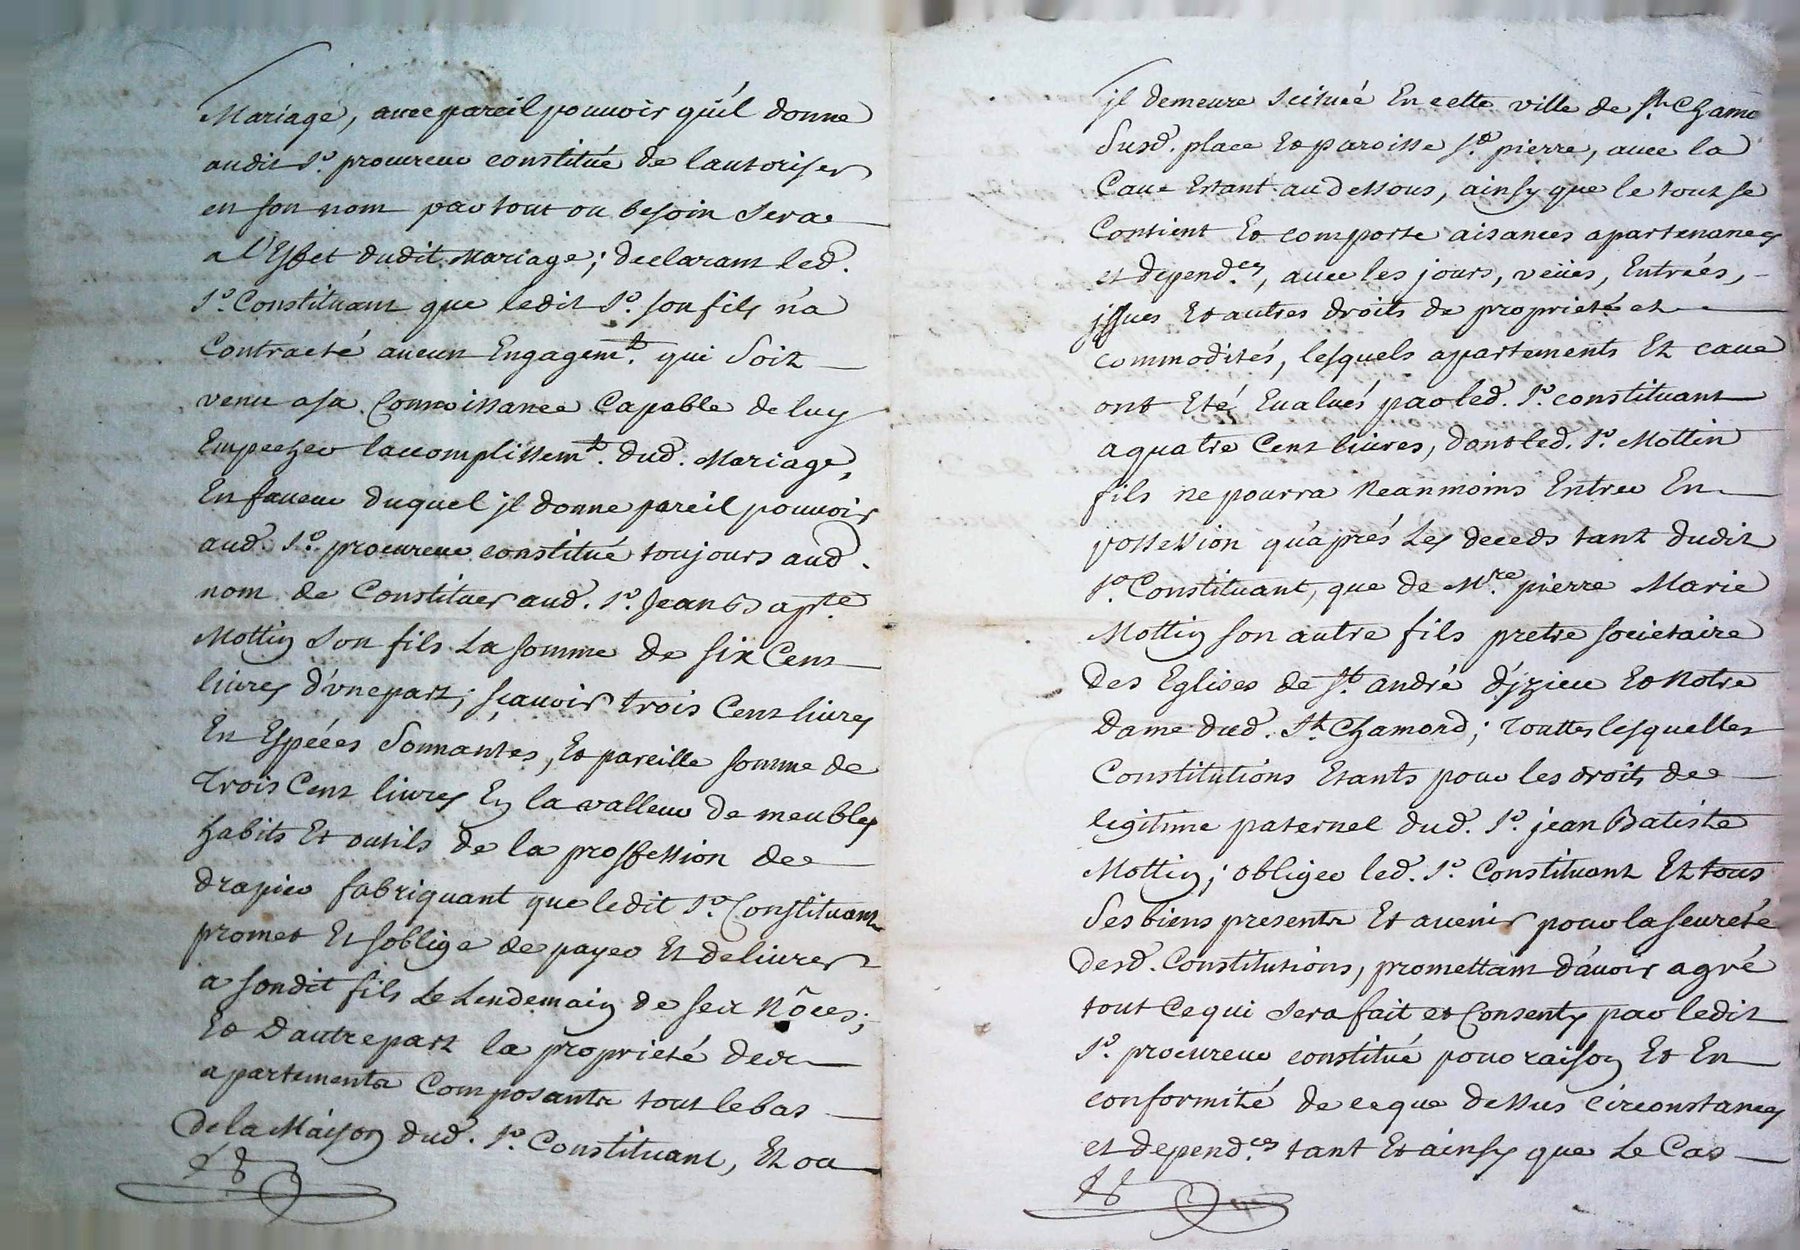 Mariage, avec pareil pouvoir qu'il donne
audit Sr. procureur constitué de lautoriser
en son nom par tout ou besoin sera
a l'Effet dudit Mariage; declarant led.
Sr. Constituant que ledit Sr. son fils n'a
Contracté aucun Engagemt. qui soit
venu a sa Connoissance Capable de luy
Empecher laccomplissemt. dud. Mariage,
En faveur duquel jl donne pareil pouvoir
aud. Sr. procureur constitué toujours aud.
nom de Constituer aud. Sr. Jean Bapte
Mottin son fils La somme de six Cent
livres d'vne part; sçavoir trois Cent livres
En Espéces Sonnantes, Et pareille somme de
Trois Cent livres En la valleur de meubles
habits Et outils de la proffession de
drapier fabriquant que ledit Sr. Constituant
promet Et soblige de payer Et delivrer
a sondit fils Le Lendemain de ses Nôces;
Et Dautre part la proprieté des
apartements Composants tout le bas
de la Maison dud. Sr. Constituant, Et ou
jl demeure scituée En cette ville de St. Chamo
Susd. place Et paroisse St. pierre, avec la
Cave Estant au dessous, ainsy que le tout se
Contient Et comporte aisances apartenances
et dependces, avec les jours, veües, Entrées,
jssues Et autres droits de proprieté et
commodités, lesquels apartements Et cave
ont Eté Evalués par led. Sr. constituant
a quatre Cent livres, dont led. Sr. Mottin
fils ne pourra Neanmoins Entrer En
possession qu'aprés Les deceds tant dudit
Sr. Constituant, que de Mre. pierre Marie
Mottin son autre fils pretre societaire
des Eglises de St. andré d'jzieu Et Notre
Dame dud. St. Chamond; Touttes lesquelles
Constitutions Etants pour les droits de
legitime paternel dud. Sr. jean Batiste
Mottin; obliger led. Sr. Constituant Et tous
Ses biens presents Et avenir pour la seureté
desd. Constitutions, promettant d'avoir agré
tout Ce qui sera fait et Consenty par ledit
Sr. procureur constitué pour raison Et En
conformité de ce que dessus circonstances
et dependces. tant Et ainsy que Le Cas